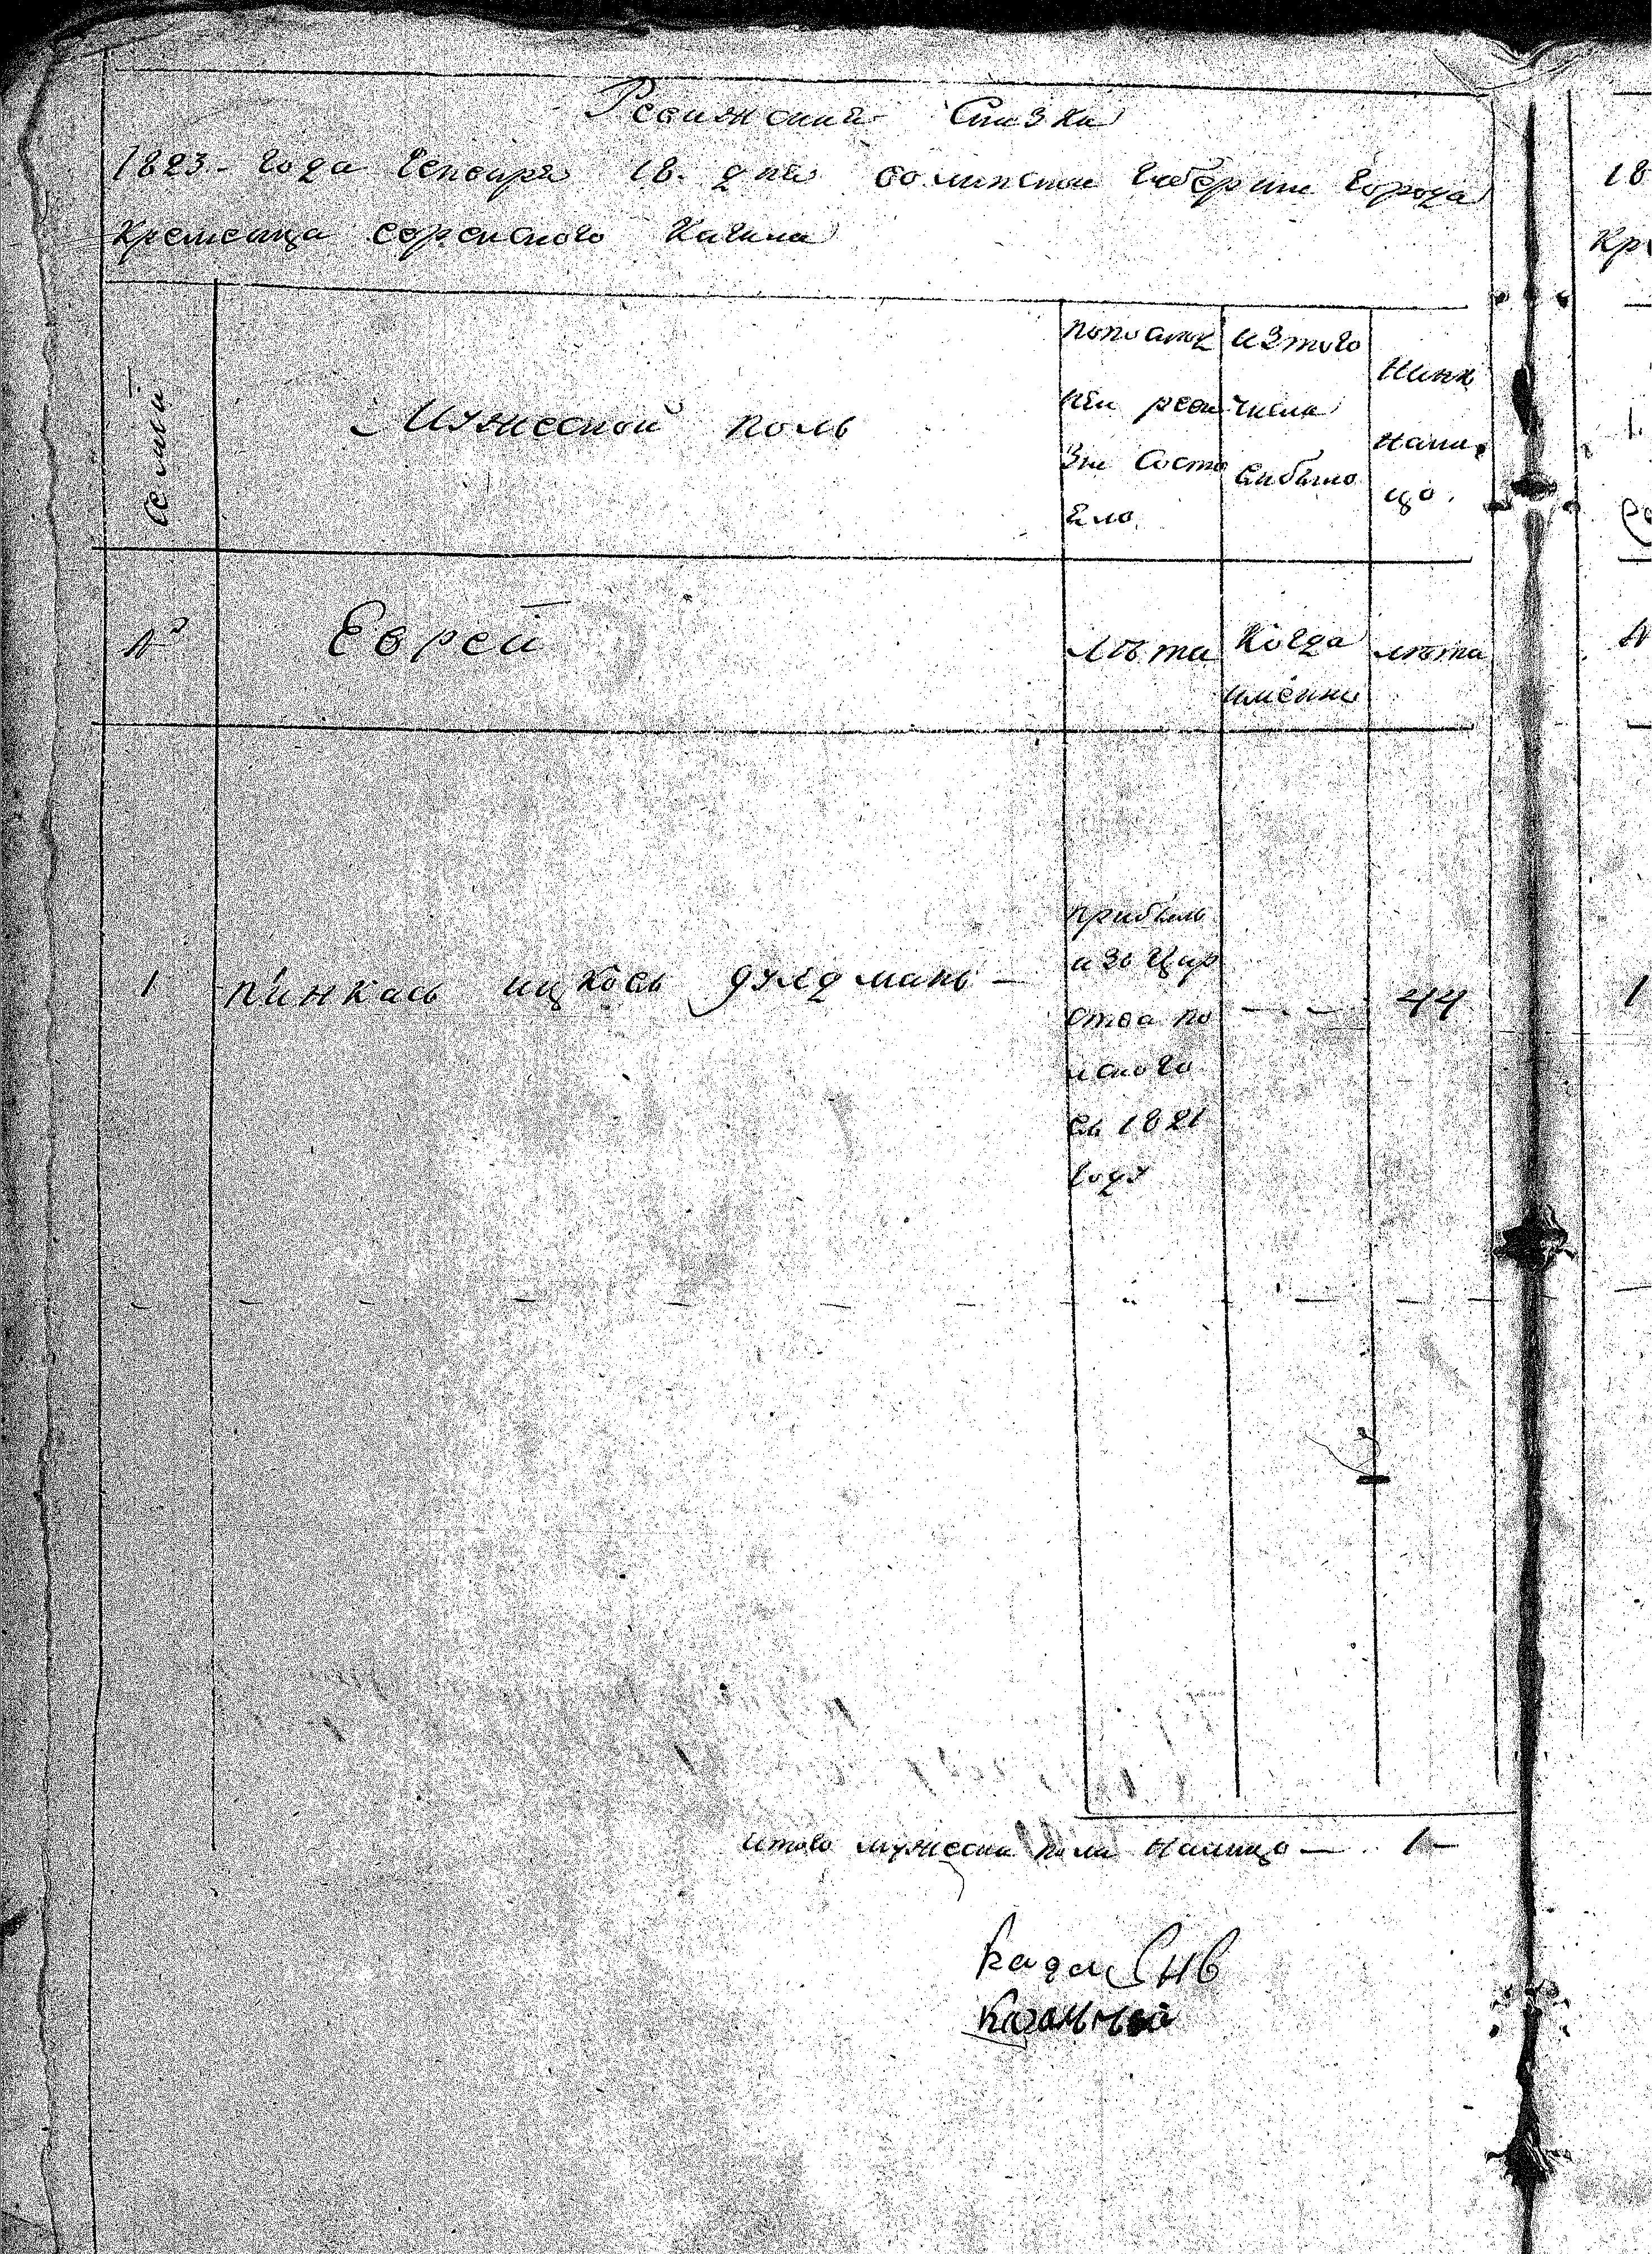 Ревижская Сказка
1823 - года Генваря 18. дня волинской Губернии города
Кременца еврейского Кагала
Семьи
Мужеской поль
попослед
ней реви
зии состо
яло
изтого
числа
выбыло
Нынѣ
нали,
цо.
№
Еврей
лѣта
Когда
имѣнно
лѣта
1 пинкась ицковь дулдмань —
прибыль
изь Цар
ства по
лского
вь 1821
году
44
Итого мужеска пола налицо — 1 —
18
Кр
1